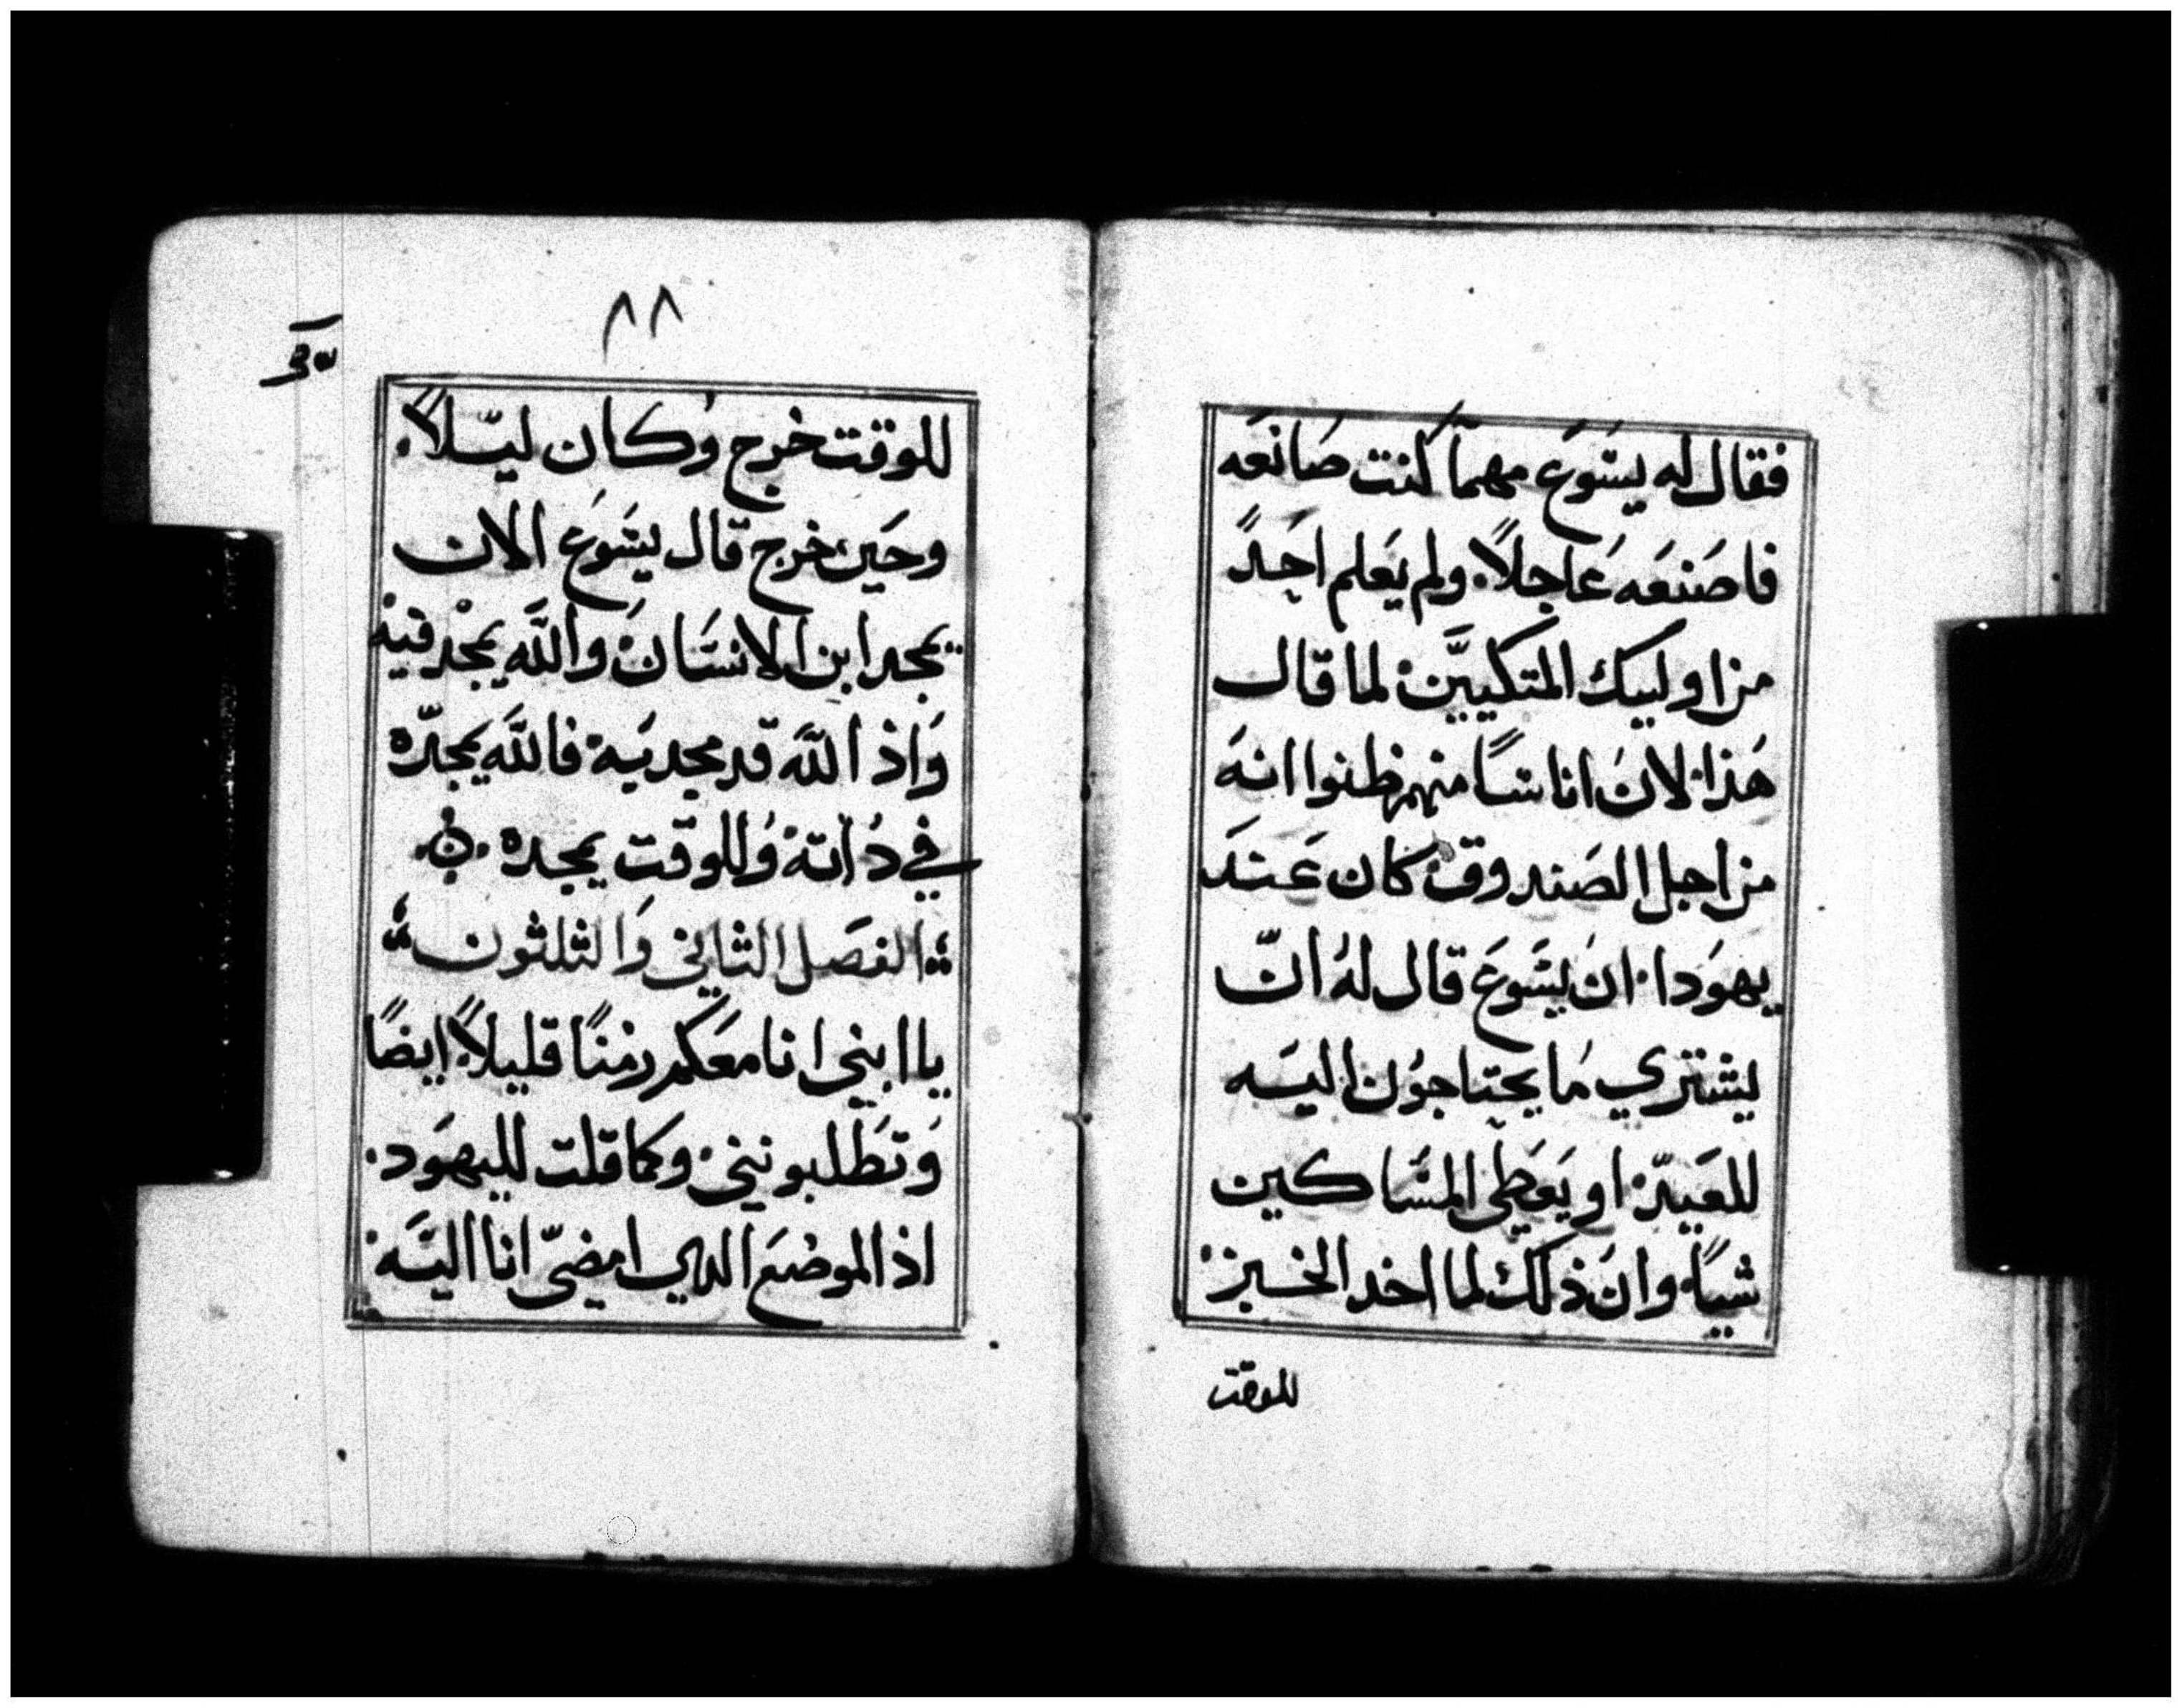 فقال له يسَوَع مهماَ كنت صَانعَه
فاصَنعَه عَاجلاً. ولم يَعلم احَدً
من اوليبك المتكييَّن لما قال
هَذا. لانَ اناسًا منهم ظنوا انهَ
من اجل الصَندوق كان عَندَ
يهوَدا. ان يسَوعَ قال لهُ انّ
ليشتري مَا يحتاجوُن اليَه
للعَيد. او يَعَطي المسَاكين
شياً. وان ذلك لما اخد الخبز.
للوقت
٨٨
للوقت خرج وكان ليلاً.
وحَين خرج قال يسَوعَ الان
يمجد ابن الانسَان والله يمجد فيه
وَاذ الله قد مجد بَه فالله يمجدّه
في دُاته وُللوقت يمجده .ن.
الفصَل الثاني وَالثلثون
يا ابني انا معَكم زمنًا قليلاً ايضًا
وَتطَلبونني. وكما قلت لليهوَد.
اذ الموضعَ الدي امضيّ انا اليَه.